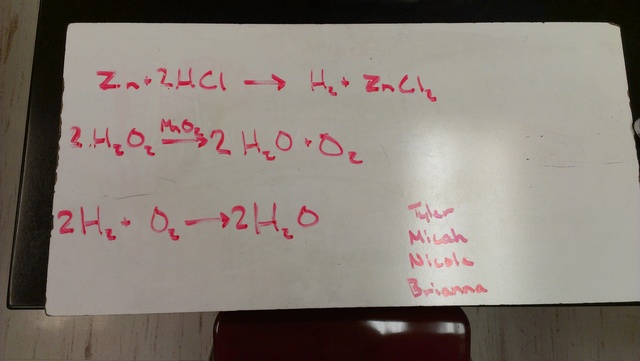 Zn + 2HCl → H₂ + ZnCl₂
2H₂O₂ MnO₂→ 2H₂O + O₂
2H₂ + O₂ → 2H₂O
Tyler
Micah
Nicole
Brianna